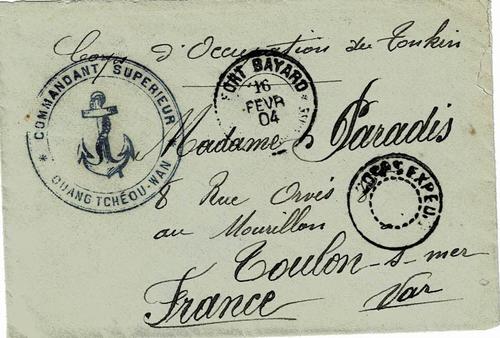 Corps d'Occupation du Tonkin
COMMANDANT SUPERIEUR
QUANG TCHÉOU-WAN
FORT BAYARD
16
FEVR
04
Madame Paradis
8 Rue Orvès 8
au Mourillon
Toulon-s-mer
France Var
CORPS EXPED.